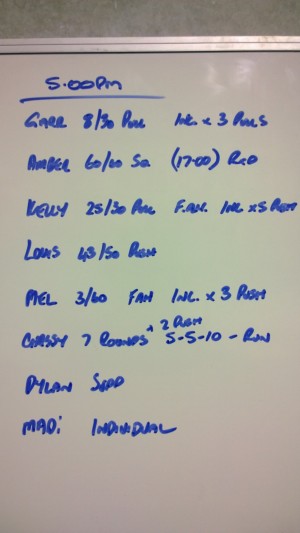 5.00pm
GARR 8/30 PULL INC. x 3 PULLS
AMBER 60/60 SQ. (17.00) RXD
KELLY 25/30 PULL F.AN. INC x5 RGM
LOUIS 43/50 RGM
MEL 3/60 FAN INC. x 3 RGM
CHASSY 7 ROUNDS + 2 RGM 5-5-10 - RUN
DYLAN
MADi INDIVIDUAL